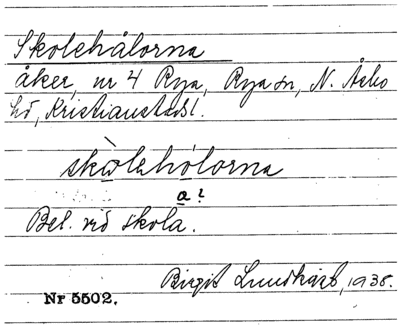 Skolehålorna
åker, nr 4 Rya, Rya sn, N. Åsbo
hd, Kristianstads l.
skòlehólorna
a?
Bel. vid skola.
Birgit 1938.
Nr 5502.